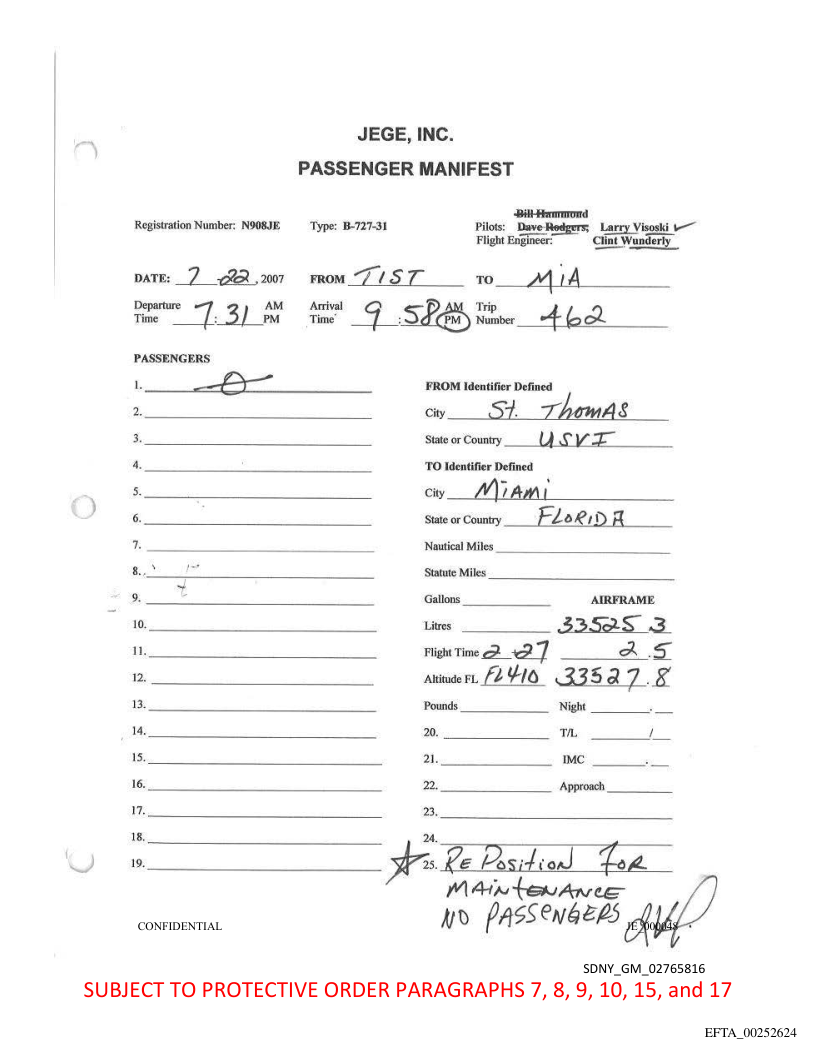 JEGE, INC.
PASSENGER MANIFEST
Bill Hammond
Registration Number: N908JE Type: B-727-31 Pilots: Dave Rodgers, Larry Visoski ✓
Flight Engineer: Clint Wunderly
DATE: 7 -22, 2007 FROM TIST TO MiA
Departure Time 7:31 AM PM Arrival Time 9:58 AM PM Trip Number 462
PASSENGERS
1. FROM Identifier Defined
2. City St. THOMAS
3. State or Country USVI
4. TO Identifier Defined
5. City MiAMi
6. State or Country FLORIDA
7. Nautical Miles
8. Statute Miles
9. Gallons AIRFRAME
10. Litres 33525 3
11. Flight Time 2 +27 2.5
12. Altitude FL FL410 33527.8
13. Pounds Night .
14. 20. T/L /
15. 21. IMC .
16. 22. Approach
17. 23.
18. 24.
19. 25. RE POSitiON FOR
MAiNtENANCE
NO PASSENGERS
CONFIDENTIAL
SDNY_GM_02765816
SUBJECT TO PROTECTIVE ORDER PARAGRAPHS 7, 8, 9, 10, 15, and 17
EFTA_00252624